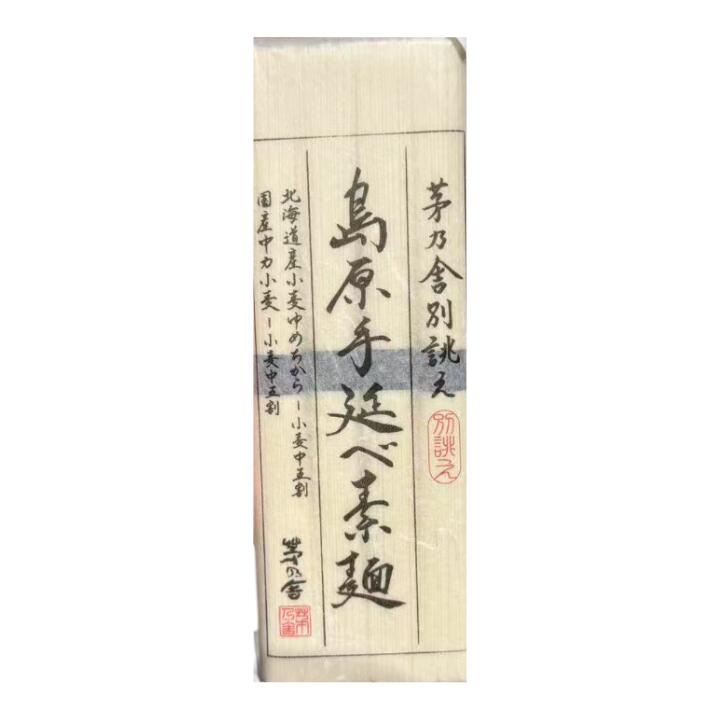 茅乃舎別誂え
別誂え
島原手延べ素麺
北海道産小麦ゆめちから-小麦中五割
国産中力小麦-小麦中五割
茅乃舎
茅乃舎